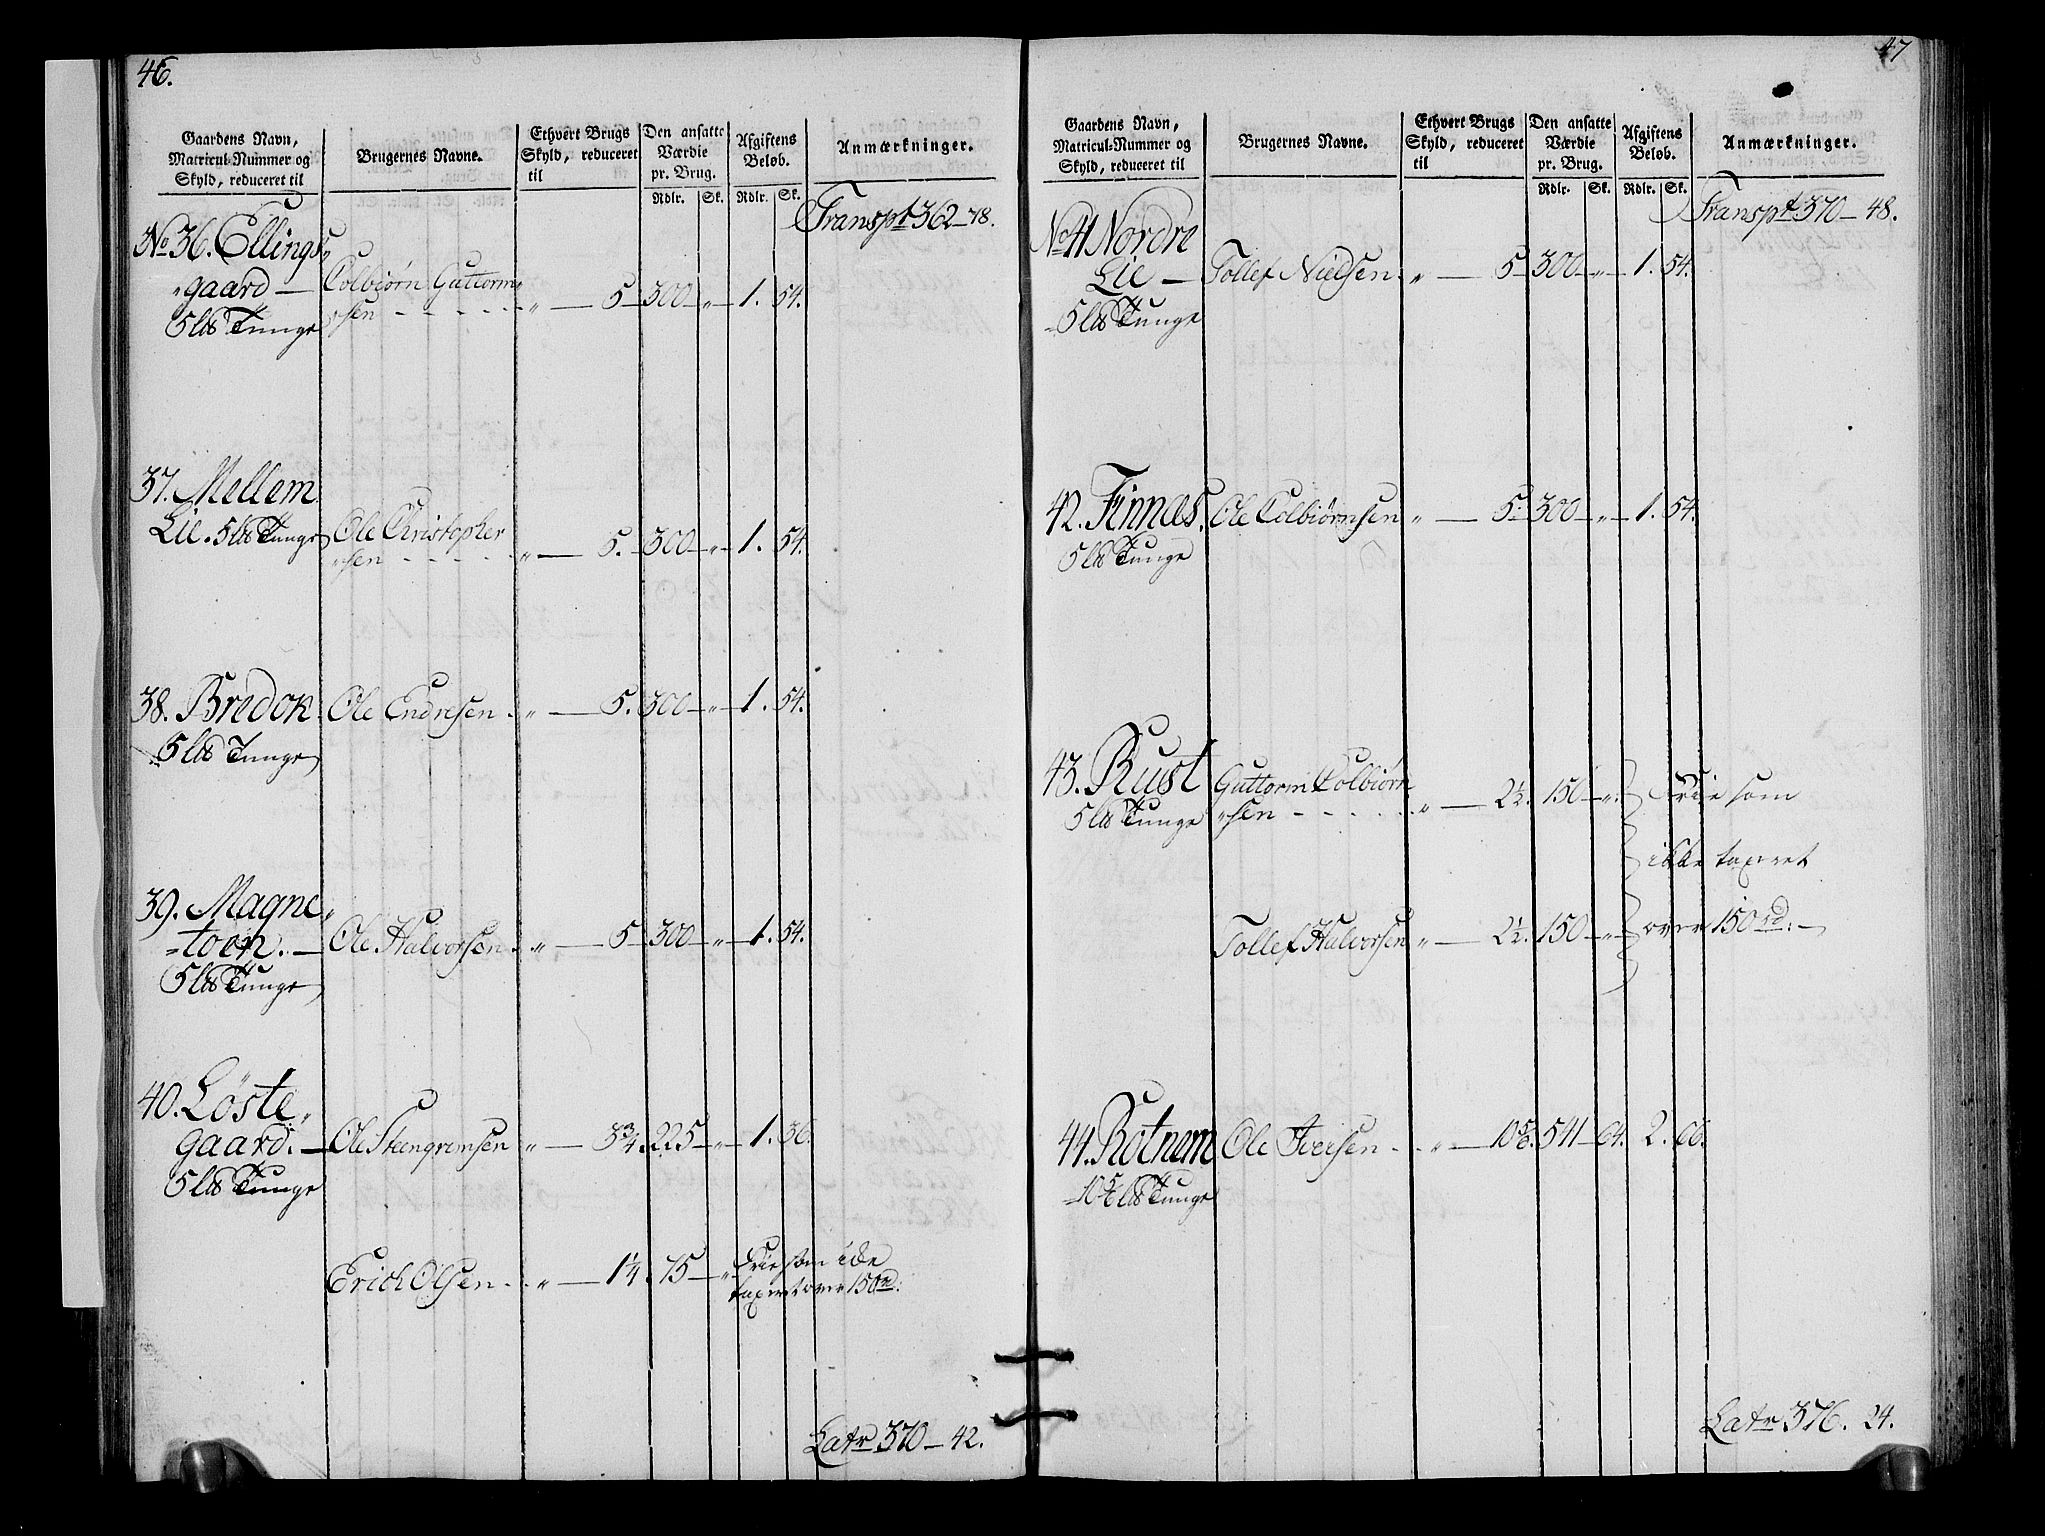 46.
Gaardens Navn, Matricul-Nummer og Skyld, reduceret til | Brugernes Navne. | Ethvert Brugs Skyld, reduceret til | Den ansatte Værdie pr. Brug. Rdlr. Sk. | Afgiftens Beløb. Rdlr. Sk. | Anmærkninger.
Transpt 362 – 78.
No 36. Ellings„
„gaard – Colbiørn Guttorm„
„sen – – – – – „ — 5 – 300 – „ – 1. 54.
5 l℔ Tunge
37. Mellem
Lie. 5 l℔ Tunge Ole Christopher
„sen – – – – – „ — 5. – 300 – „ – 1. 54.
38. Bredok Ole Endresen . „ — 5. 300 – „ – 1. 54.
5 l℔ Tunge
39. Magne„
„toen. – Ole Halvorsen . „ — 5 – 300 – „ – 1. 54.
5 l℔ Tunge
40. Løste„
gaard. – Ole Steengremsen „ — 3¾. 225 – „ – 1. 36.
5 l℔ Tunge
Erich Olsen . . „ — 1¼. 75 – „ – Frie som icke
taxeret over 150 rd:
Latr 370 – 42.
47
Gaardens Navn, Matricul-Nummer og Skyld, reduceret til | Brugernes Navne. | Ethvert Brugs Skyld, reduceret til | Den ansatte Værdie pr. Brug. Rdlr. Sk. | Afgiftens Beløb. Rdlr. Sk. | Anmærkninger.
Transpt 370 – 48.
No 41 Nordre
Lie – Tollef Nielsen . „ — 5 – 300 – „ – 1. 54.
5 l℔ Tunge
42. Finnæs. Ole Colbiørnsen „ — 5 – 300 – „ – 1. 54.
5 l℔ Tunge
43. Rust Guttorm Colbiørn
5 l℔ Tunge „sen – – – – . . „ — 2½. 150 – „. Frie som
ikke taxeret
Tollef Halvorsen „ — 2½. 150 – „ – over 150 rd: –
44. Rotnem Ole Iversen . . „ — 10⅚. 541 – 64. 2. 66.
10⅚ l℔ Tunge
Latr 376. 24.